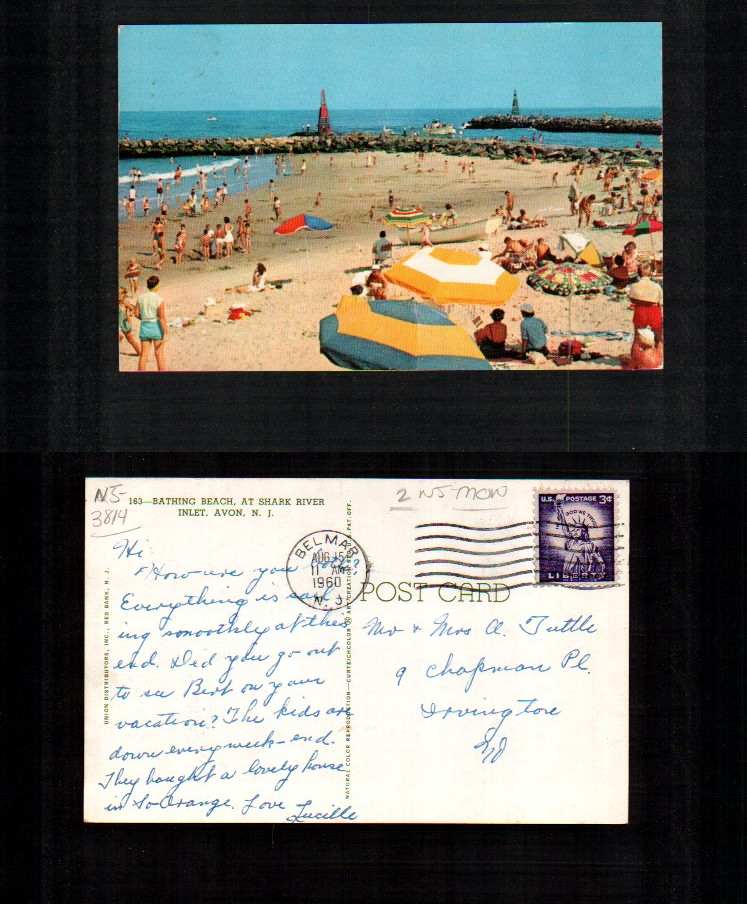 NJ-
3814
2 NJ-MOW
163—BATHING BEACH, AT SHARK RIVER
INLET, AVON, N. J.
U.S. POSTAGE 3¢
IN GOD WE TRUST
LIBERTY
BELMAR
AUG 15
11 AM
1960
N. J.
POST CARD
UNION DISTRIBUTORS, INC., RED BANK, N. J.
Hi
How are you both?
Everything is sail
ing smoothly at this
end. Did you go out
to see Bert on your
vacation? The kids are
down every week-end.
They bought a lovely house
in So Orange. Love Lucille
Mr & Mrs A. Tuttle
9 Chapman Pl.
Irvington
NJ